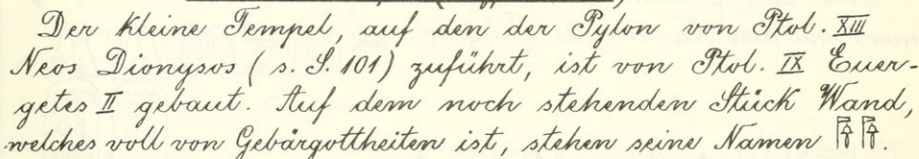 Der kleine Tempel, auf den der Pylon von Ptol. XIII
Neos Dionysos (s. S. 101) zuführt, ist von Ptol. IX Euer-
getes II gebaut. Auf dem noch stehenden Stück Wand,
welches voll von Gebärgottheiten ist, stehen seine Namen